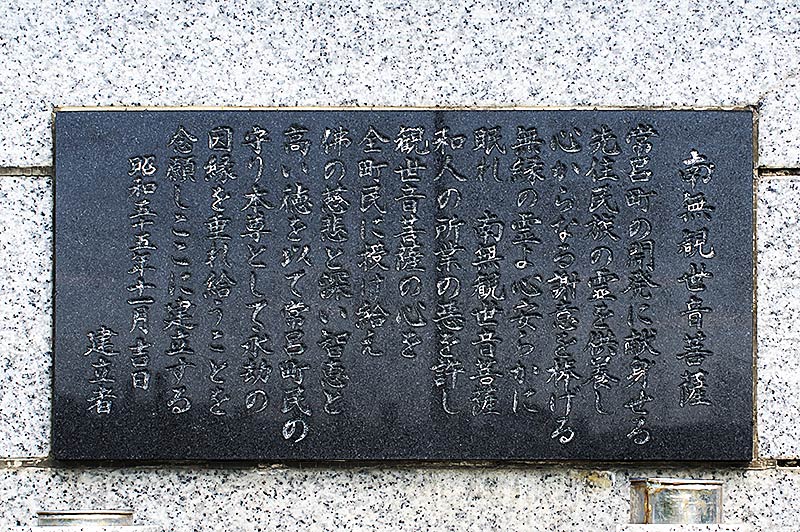 南無観世音菩薩
常呂町の開発に献身せる
先住民族の霊を供養し
心からなる謝意を捧げる
無縁の霊よ心安らかに
眠れ　南無観世音菩薩
和人の所業の悪を許し
観世音菩薩の心を
全町民に授け給え
佛の慈悲と深い智恵と
高い徳を以て常呂町民の
守り本尊として永劫の
因縁を垂れ給うことを
念願しここに建立する
昭和五十五年十一月吉日
建立者